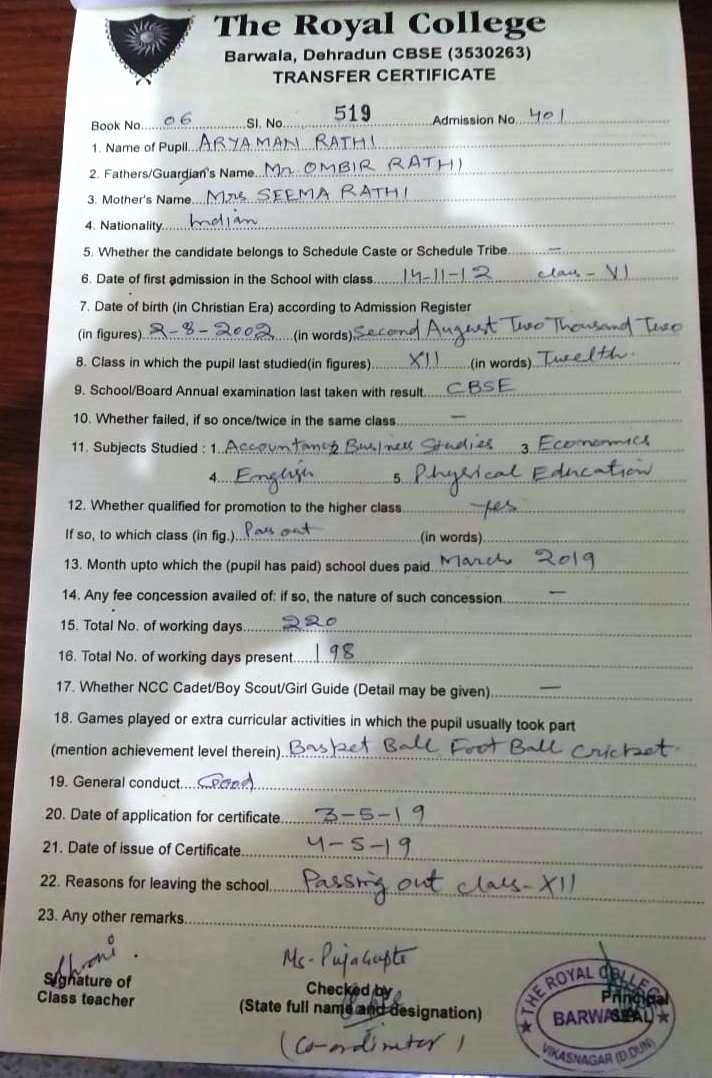 The Royal College
Barwala, Dehradun CBSE (3530263)
TRANSFER CERTIFICATE
Book No. 06 Sl. No. 519 Admission No. 401
1. Name of Pupil ARYAMAN RATHI
2. Fathers/Guardian's Name Mr. OMBIR RATHI
3. Mother's Name Mrs SEEMA RATHI
4. Nationality Indian
5. Whether the candidate belongs to Schedule Caste or Schedule Tribe —
6. Date of first admission in the School with class 14-11-12 class - VI
7. Date of birth (in Christian Era) according to Admission Register
(in figures) 2-8-2002 (in words) Second August Two Thousand Two
8. Class in which the pupil last studied(in figures) XII (in words) Twelth.
9. School/Board Annual examination last taken with result CBSE
10. Whether failed, if so once/twice in the same class —
11. Subjects Studied : 1. Accountancy 2 Business Studies 3. Economics
4. English 5. Physical Education
12. Whether qualified for promotion to the higher class yes
If so, to which class (in fig.) Pass out (in words)
13. Month upto which the (pupil has paid) school dues paid March 2019
14. Any fee concession availed of: if so, the nature of such concession —
15. Total No. of working days 220
16. Total No. of working days present 198
17. Whether NCC Cadet/Boy Scout/Girl Guide (Detail may be given) —
18. Games played or extra curricular activities in which the pupil usually took part
(mention achievement level therein) Basket Ball Foot Ball cricket.
19. General conduct Good
20. Date of application for certificate 3-5-19
21. Date of issue of Certificate 4-5-19
22. Reasons for leaving the school Passing out class-XII
23. Any other remarks
Ms. Puja Gupte
Signature of Class teacher
Checked by
(State full name and designation)
(Co-ordinator)
Principal
SEAL
THE ROYAL COLLEGE
BARWALA
VIKASNAGAR (D.DUN)